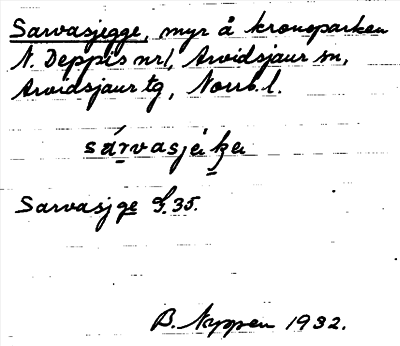 Sarvasjegge, myr å kronoparken
N. Deppis nr 1, Arvidsjaur sn,
Arvidsjaur tg, Norrb. l.
sárvasjéi̯ kei
Sarvasjge G. 35.
B. Nyppen 1932.